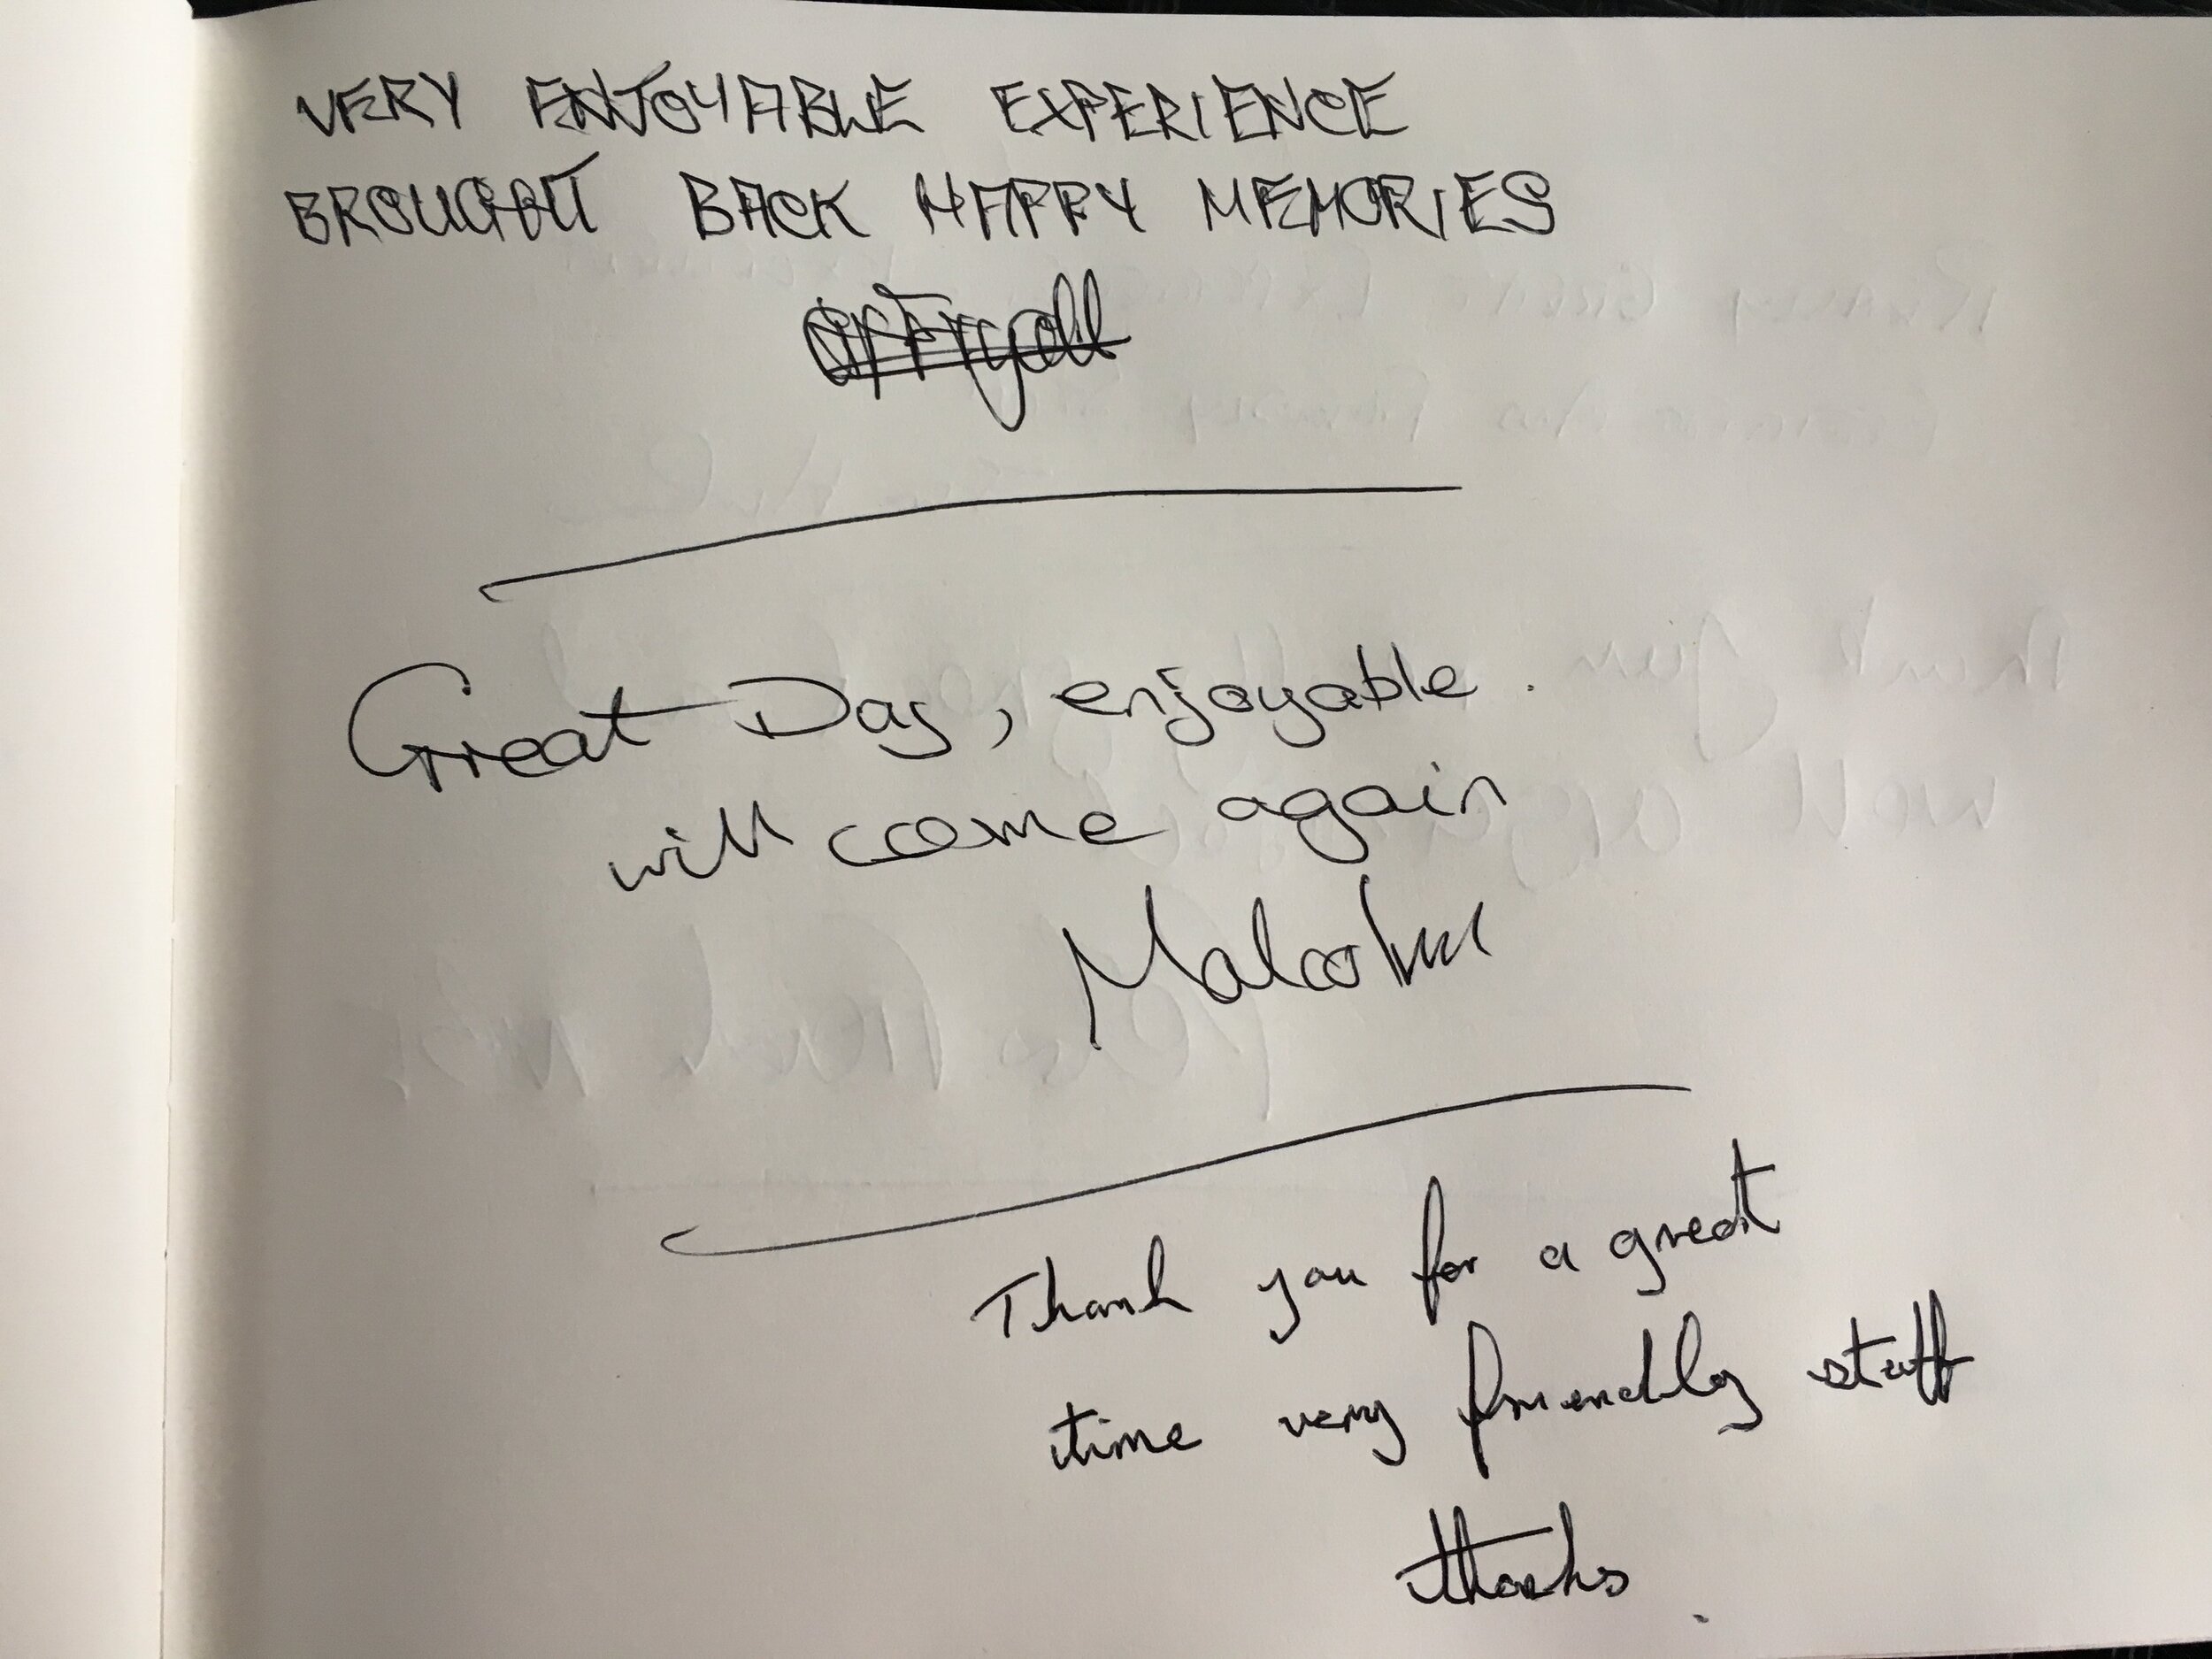 VERY ENJOYABLE EXPERIENCE
BROUGHT BACK HAPPY MEMORIES
Great Day, enjoyable.
will come again
Malcolm
Thank you for a great
time very friendly staff
thanks.